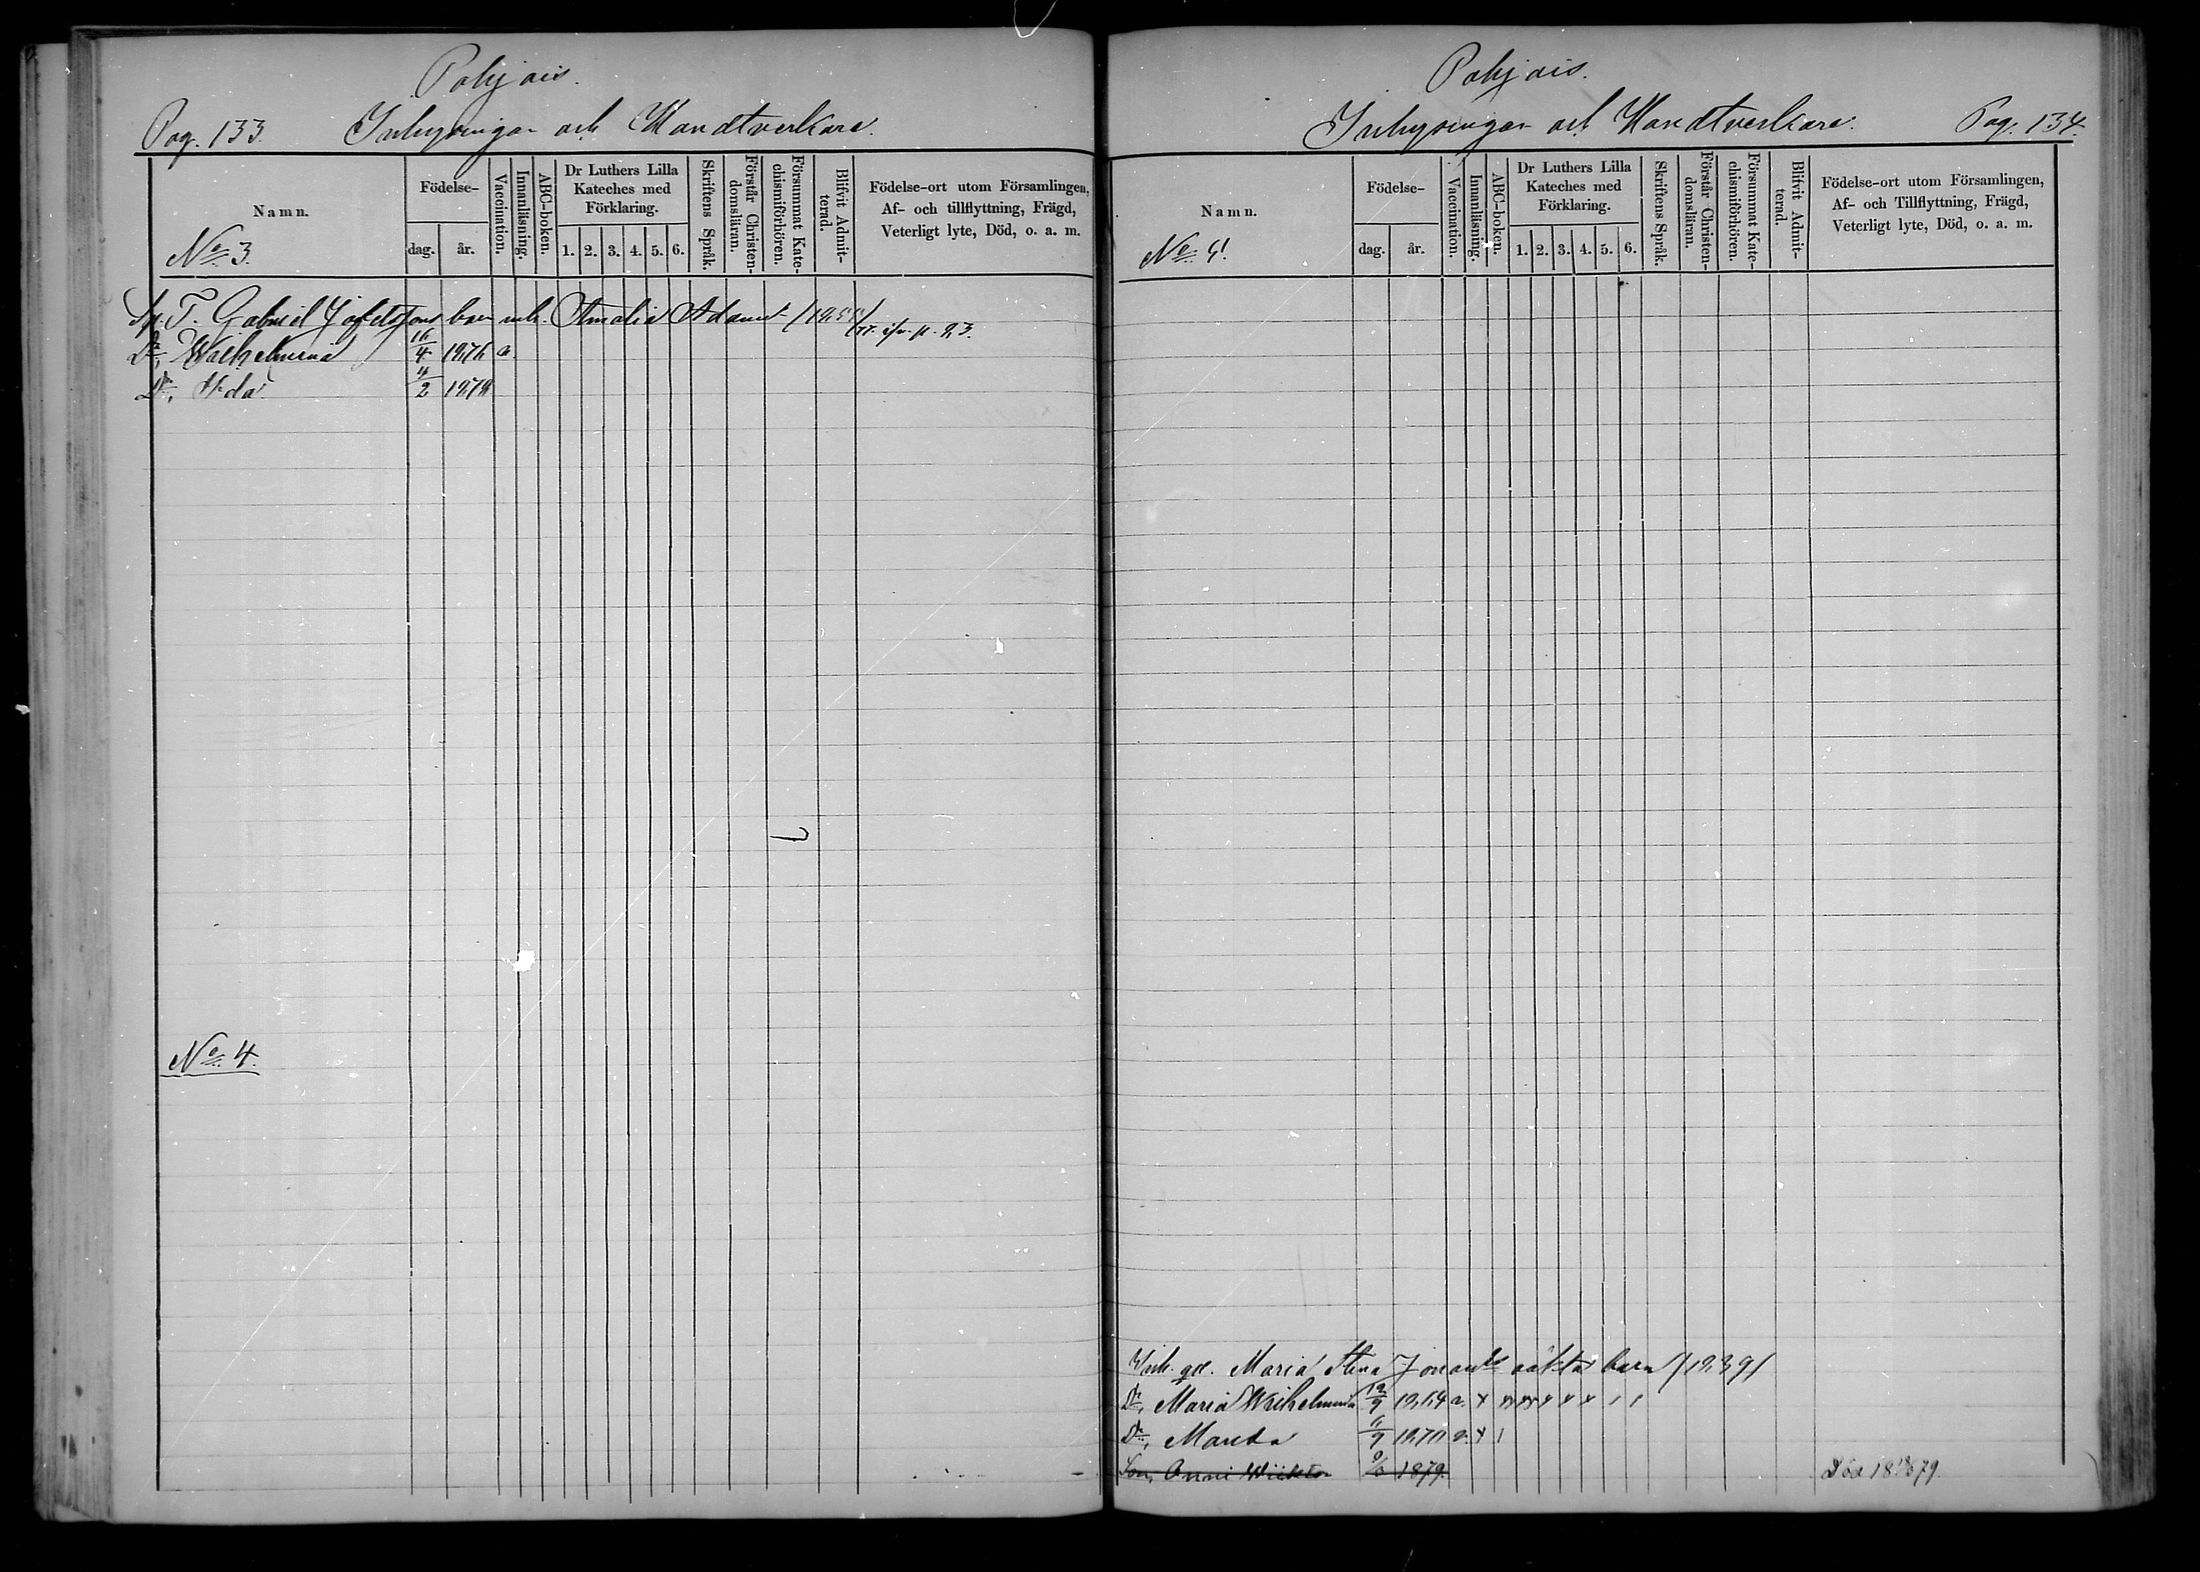 Pohjois.
Pag. 133. Inhysingar och Handtverkare.
Namn. Födelse- dag. år. Vaccination. Innanläsning. ABC-boken. Dr Luthers Lilla Kateches med Förklaring. 1. 2. 3. 4. 5. 6. Skriftens Språk. Förstår Christen-domsläran. Försummat Kate-chismiförhören. Blifvit Admit-terad. Födelse-ort utom Församlingen, Af- och tillflyttning, Frägd, Veterligt lyte, Död, o. a. m.
No 3.
Gabriel barn Amalia Adamsd.
Dr, Wilhelmina 16/4 1876
Dr, Ida 2 1878
No 4.
Pohjois.
Inhysingar och Handtverkare. Pag. 134.
Namn. Födelse- dag. år. Vaccination. Innanläsning. ABC-boken. Dr Luthers Lilla Kateches med Förklaring. 1. 2. 3. 4. 5. 6. Skriftens Språk. Förstår Christen-domsläran. Försummat Kate-chismiförhören. Blifvit Admit-terad. Födelse-ort utom Församlingen, Af- och Tillflyttning, Frägd, Veterligt lyte, Död, o. a. m.
No
Maria Stina oäkta barn /1839/
Dr, Maria Wilhelmina 12/9 1864
Dr, Manda 1870
Son, Wiktor 1879. Död